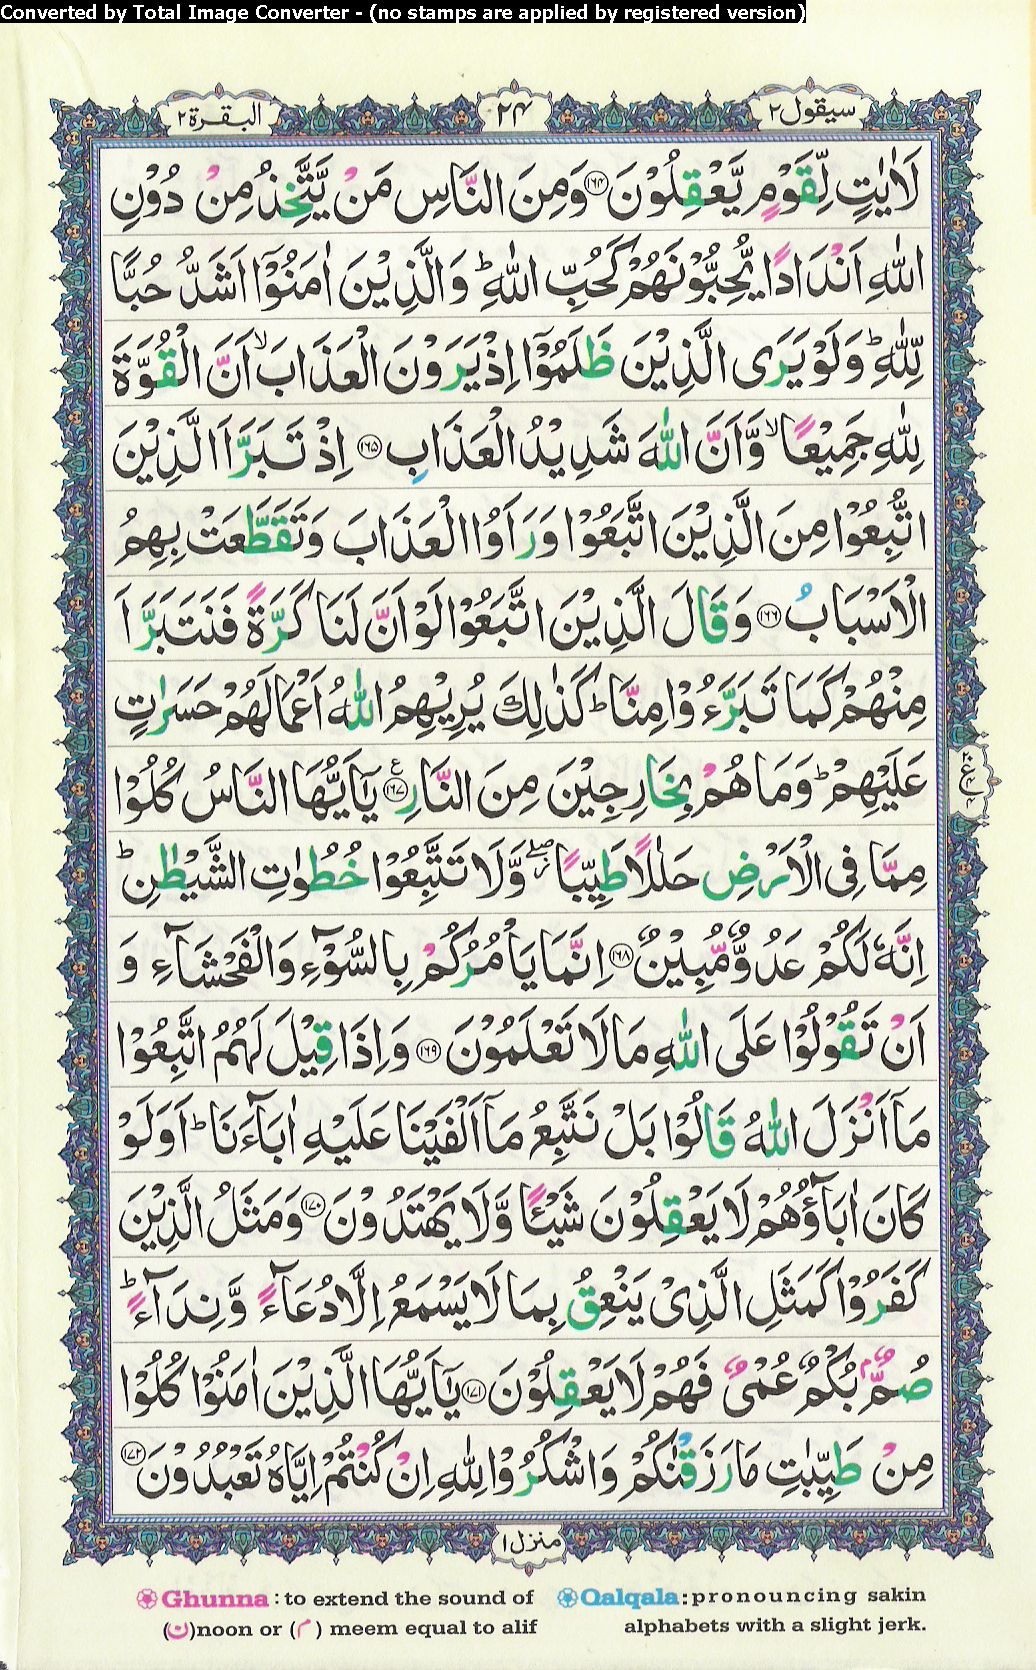 Converted by Total Image Converter - (no stamps are applied by registered version)
سيقول ٢
٢٤
البقرة ٢
لَاٰيٰتٍ لِّقَوْمٍ يَّعْقِلُوْنَ ١٦٤ وَمِنَ النَّاسِ مَنْ يَّتَّخِذُ مِنْ دُوْنِ
اللّٰهِ اَنْدَادًا يُّحِبُّوْنَهُمْ كَحُبِّ اللّٰهِ ؕ وَالَّذِيْنَ اٰمَنُوْۤا اَشَدُّ حُبًّا
لِّلّٰهِ ؕ وَلَوْ يَرَى الَّذِيْنَ ظَلَمُوْۤا اِذْ يَرَوْنَ الْعَذَابَ ۙ اَنَّ الْقُوَّةَ
لِلّٰهِ جَمِيْعًا ۙ وَّاَنَّ اللّٰهَ شَدِيْدُ الْعَذَابِ ١٦٥ اِذْ تَبَرَّاَ الَّذِيْنَ
اتُّبِعُوْا مِنَ الَّذِيْنَ اتَّبَعُوْا وَرَاَوُا الْعَذَابَ وَتَقَطَّعَتْ بِهِمُ
الْاَسْبَابُ ١٦٦ وَقَالَ الَّذِيْنَ اتَّبَعُوْا لَوْ اَنَّ لَنَا كَرَّةً فَنَتَبَرَّاَ
مِنْهُمْ كَمَا تَبَرَّءُوْا مِنَّا ؕ كَذٰلِكَ يُرِيْهِمُ اللّٰهُ اَعْمَالَهُمْ حَسَرٰتٍ
عَلَيْهِمْ ؕ وَمَا هُمْ بِخَارِجِيْنَ مِنَ النَّارِ ١٦٧ ع يٰۤاَيُّهَا النَّاسُ كُلُوْا
مِمَّا فِى الْاَرْضِ حَلٰلًا طَيِّبًا ۖ وَّلَا تَتَّبِعُوْا خُطُوٰتِ الشَّيْطٰنِ ؕ
اِنَّهٗ لَكُمْ عَدُوٌّ مُّبِيْنٌ ١٦٨ اِنَّمَا يَاْمُرُكُمْ بِالسُّوْٓءِ وَالْفَحْشَآءِ وَ
اَنْ تَقُوْلُوْا عَلَى اللّٰهِ مَا لَا تَعْلَمُوْنَ ١٦٩ وَاِذَا قِيْلَ لَهُمُ اتَّبِعُوْا
مَاۤ اَنْزَلَ اللّٰهُ قَالُوْا بَلْ نَتَّبِعُ مَاۤ اَلْفَيْنَا عَلَيْهِ اٰبَآءَنَا ؕ اَوَلَوْ
كَانَ اٰبَآؤُهُمْ لَا يَعْقِلُوْنَ شَيْـًٔا وَّلَا يَهْتَدُوْنَ ١٧٠ وَمَثَلُ الَّذِيْنَ
كَفَرُوْا كَمَثَلِ الَّذِىْ يَنْعِقُ بِمَا لَا يَسْمَعُ اِلَّا دُعَآءً وَّنِدَآءً ؕ
صُمٌّۢ بُكْمٌ عُمْىٌ فَهُمْ لَا يَعْقِلُوْنَ ١٧١ يٰۤاَيُّهَا الَّذِيْنَ اٰمَنُوْا كُلُوْا
مِنْ طَيِّبٰتِ مَا رَزَقْنٰكُمْ وَاشْكُرُوْا لِلّٰهِ اِنْ كُنْتُمْ اِيَّاهُ تَعْبُدُوْنَ ١٧٢
منزل ١
Ghunna : to extend the sound of (ن)noon or (م) meem equal to alif
Qalqala : pronouncing sakin alphabets with a slight jerk.